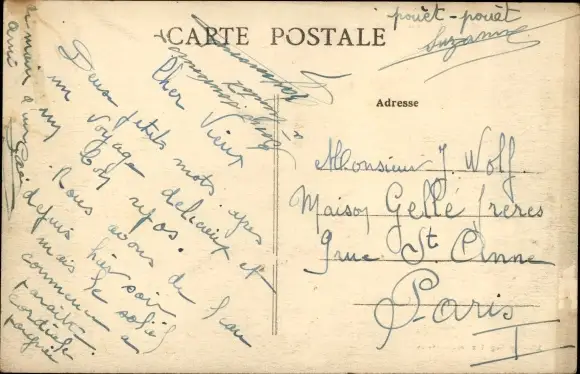 CARTE POSTALE
pouêt-pouêt
Suzanne
Adresse
Monsieur J. Wolf
Maison Gellé frères
9 rue St. Anne
Paris
I
Cher Vieux
Deux petits mots après
un voyage délicieux et
un bon repos.
Nous avons de l'eau
depuis hier soir
mais le soleil
commence a
paraître.
cordiale
poignée
main a
ami